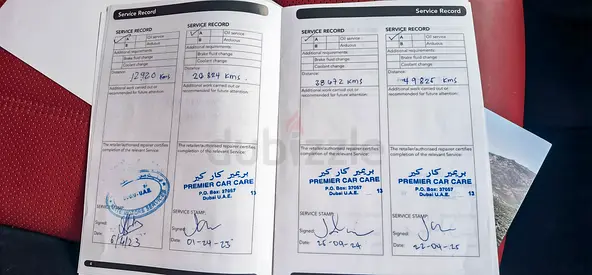 Service Record
SERVICE RECORD
✓ A Oil service
B Antudust
Additional requirements:
Brake fluid change
Coolant change
Distance:
12920 KMS
Additional work carried out or recommended for future attention:
The retailer/authorised repairer certifies
completion of the relevant Service:
SERVICE STAMP:
Signed:
Date: 6/4/23
SERVICE RECORD
✓ A Oil service
B
Additional requirements:
Brake fluid change
Coolant change
Distance:
20 324 KMS.
Additional work carried out or
recommended for future attention:
The retailer/authorised repairer certifies
completion of the relevant Service:
بريمير كار كير
PREMIER CAR CARE
P.O. Box: 37057
Dubai U.A.E.
13
SERVICE STAMP:
Signed:
Date: 01-24-23
Service Record
SERVICE RECORD
✓ A Oil service
B
Additional requirements:
Brake fluid change
Coolant change
Distance:
38 672 KMS
Additional work carried out or
recommended for future attention:
The retailer/authorised repairer certifies
completion of the relevant Service:
بريمير كار كير
PREMIER CAR CARE
P.O. Box: 37057
Dubai U.A.E.
13
SERVICE STAMP:
Signed:
Date: 25-09-24
SERVICE RECORD
✓ A Oil service
B
Additional requirements:
Brake fluid change
Coolant change
Distance:
49 825 KMS
Additional work carried out or
recommended for future attention:
The retailer/authorised repairer certifies
completion of the relevant Service:
بريمير كار كير
PREMIER CAR CARE
P.O. Box: 37057
Dubai U.A.E.
13
SERVICE STAMP:
Signed:
Date: 22-04-25
dubizzle